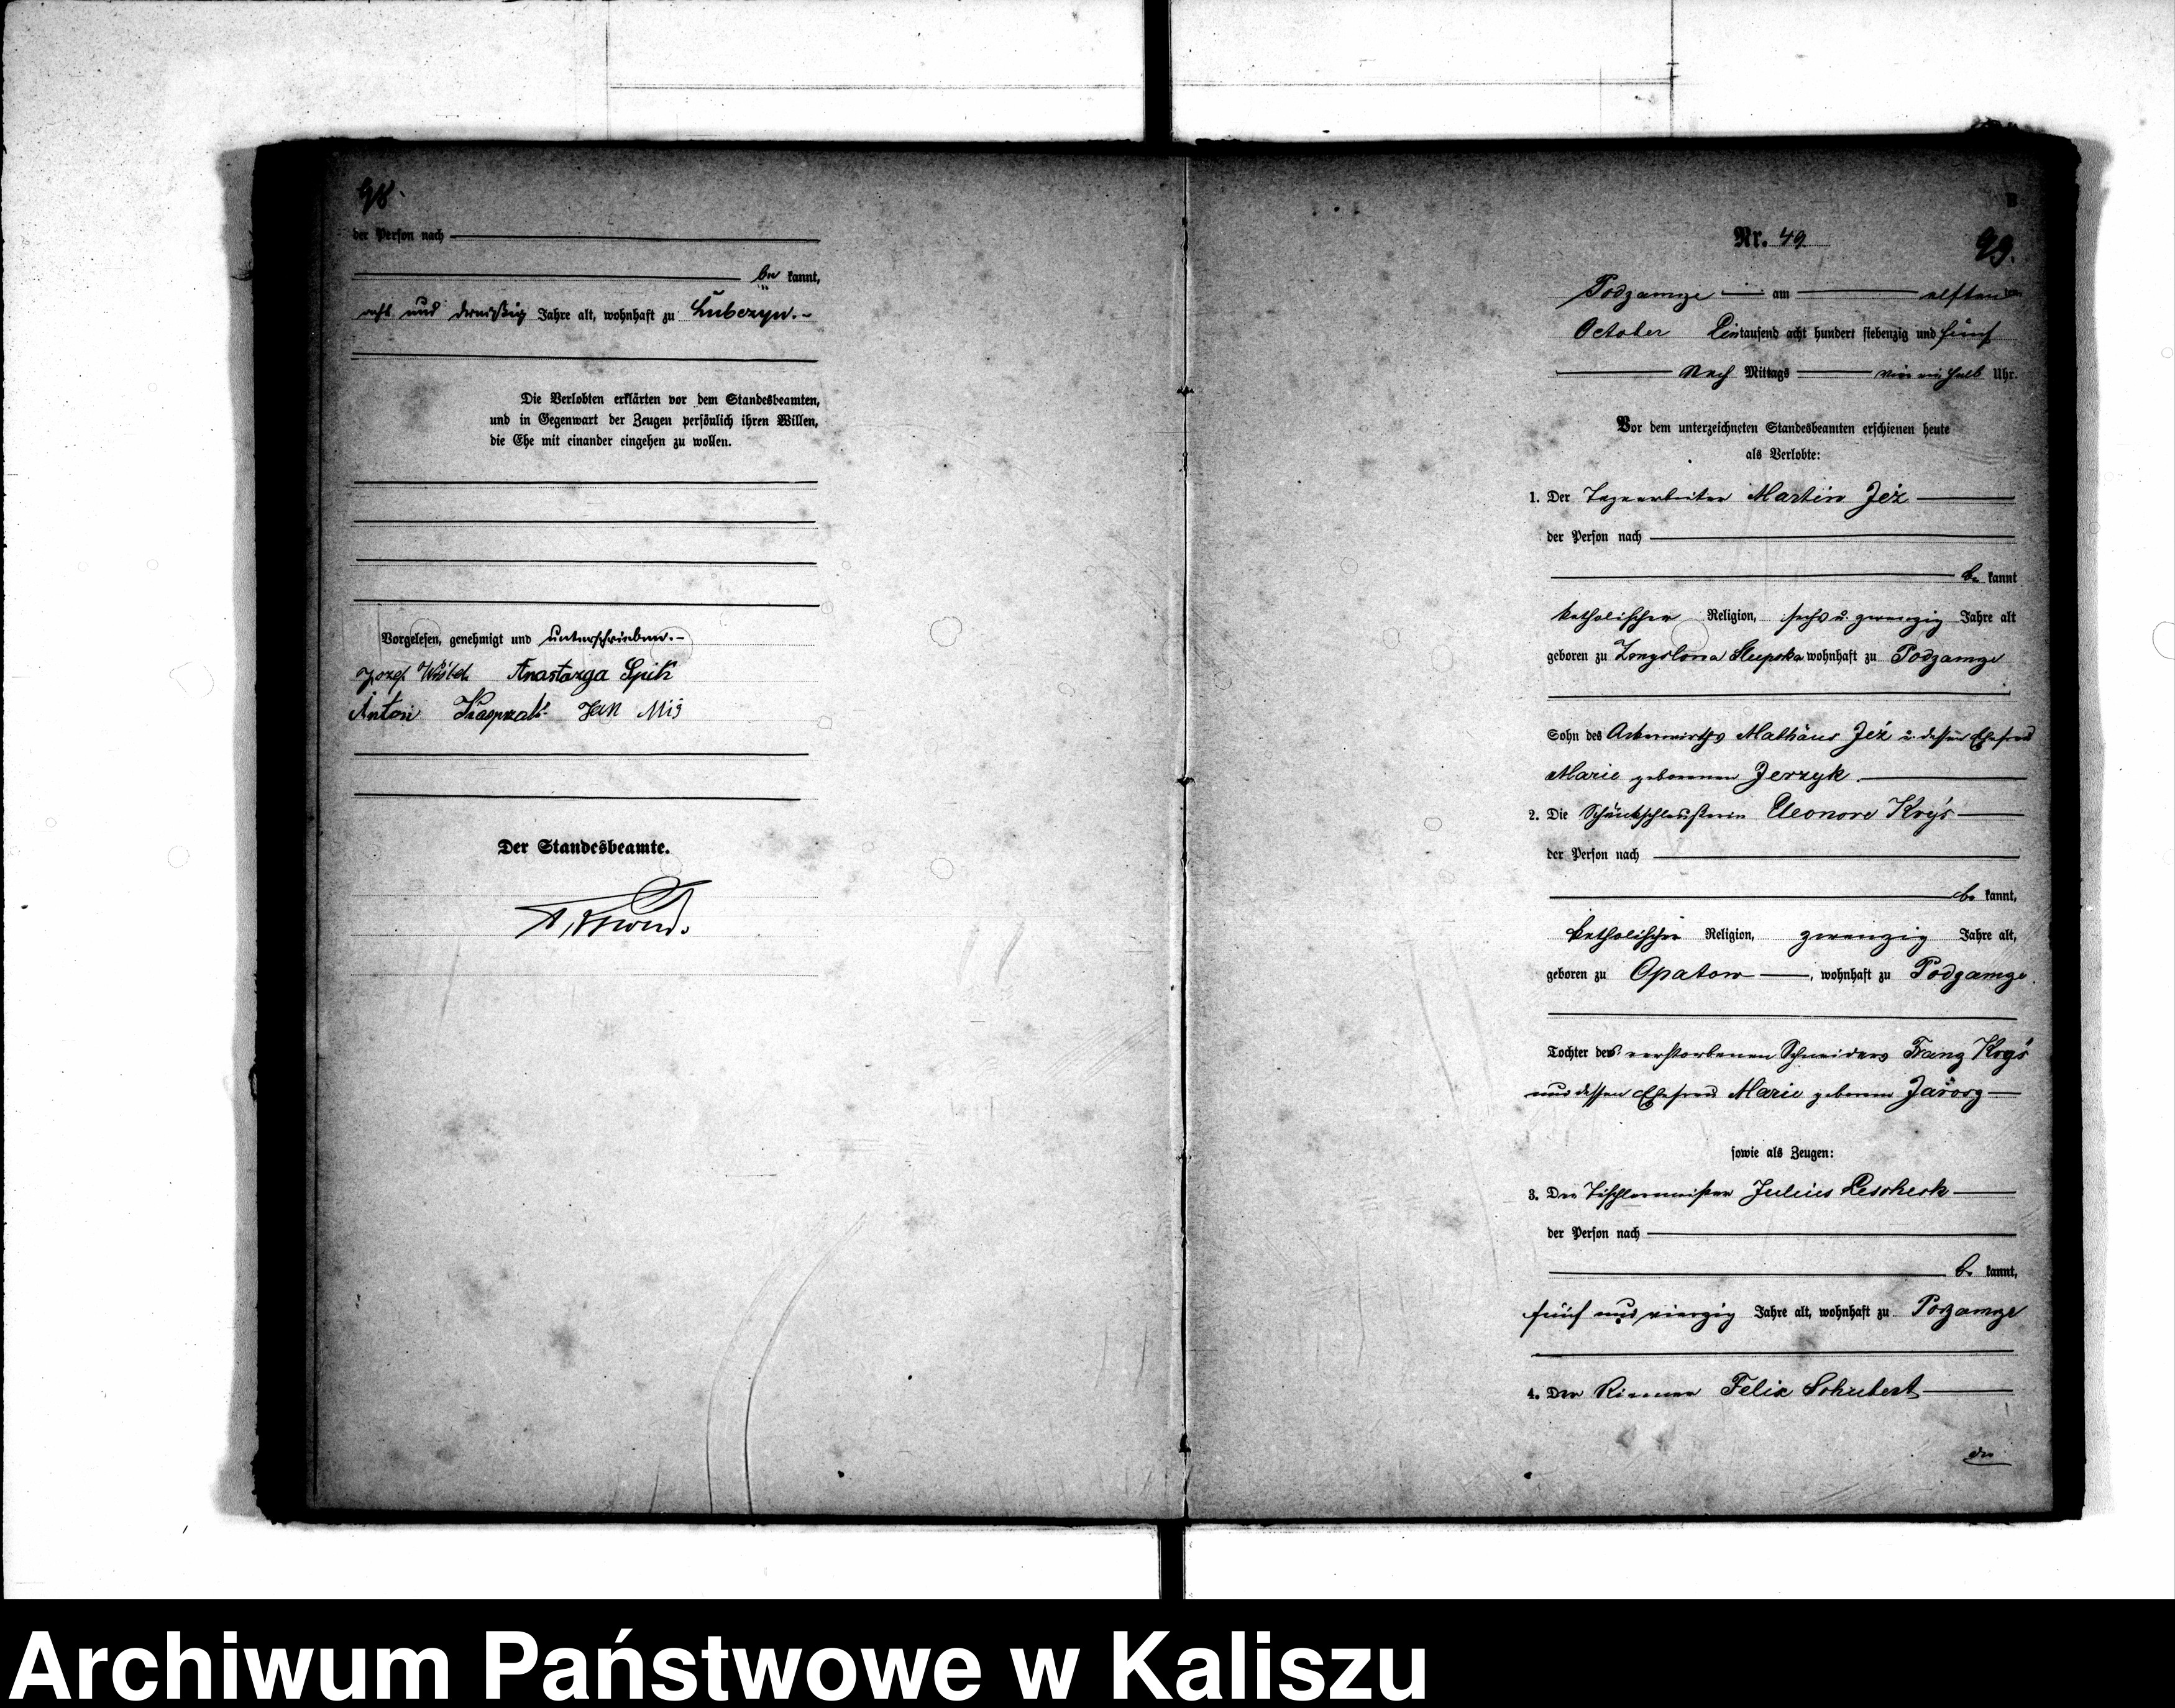 98.
der Person nach
be kannt,
acht und dreißig Jahre alt, wohnhaft zu Lubczyn.-
Die Verlobten erklärten vor dem Standesbeamten,
und in Gegenwart der Zeugen persönlich ihren Willen,
die Ehe mit einander eingehen zu wollen.
Vorgelesen, genehmigt und unterschrieben.-
Anastazya Spik
Antoni Kasprzak Jan Miś
Der Standesbeamte.
B
Nr. 49
99.
Podzamcze am elften ten
October Eintausend acht hundert siebenzig und fünf
Nach Mittags vier ein halb Uhr.
Vor dem unterzeichneten Standesbeamten erschienen heute
als Verlobte:
1. Der Tagearbeiter Martin Jeż
der Person nach
be kannt
katholischer Religion, sechs u. zwanzig Jahre alt
geboren zu Slupska wohnhaft zu Podzamcze
Sohn des Ackerwirths Mathäus Jeż u. dessen Ehefrau
Marie geborenen Jerzyk.
2. Die Eleonore Kryś
der Person nach
be kannt,
katholischer Religion, zwanzig Jahre alt,
geboren zu Opatow, wohnhaft zu Podzamcze.
Tochter des verstorbenen Schneiders Franz Kryś
und dessen Ehefrau Marie geborene
sowie als Zeugen:
3. Der Tischlermeister Julius Lescheck
der Person nach
be kannt,
fünf und vierzig Jahre alt, wohnhaft zu Podzamcze
4. Der Riemer Felix Schubert
der
Archiwum Państwowe w Kaliszu